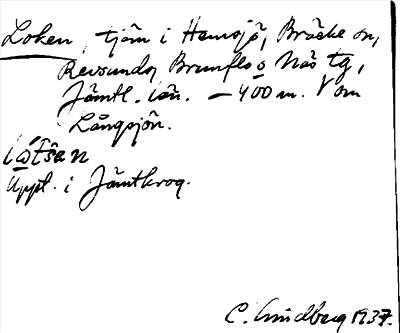 Loken, tjärn i Hemsjö, Bräcke sn,
Revsunds, Brunflo o Näs tg,
Jämtl. län. – 400 m. V om
Långsjön.
Uppt. i Jämtkrog.
C. Lindberg 1937.